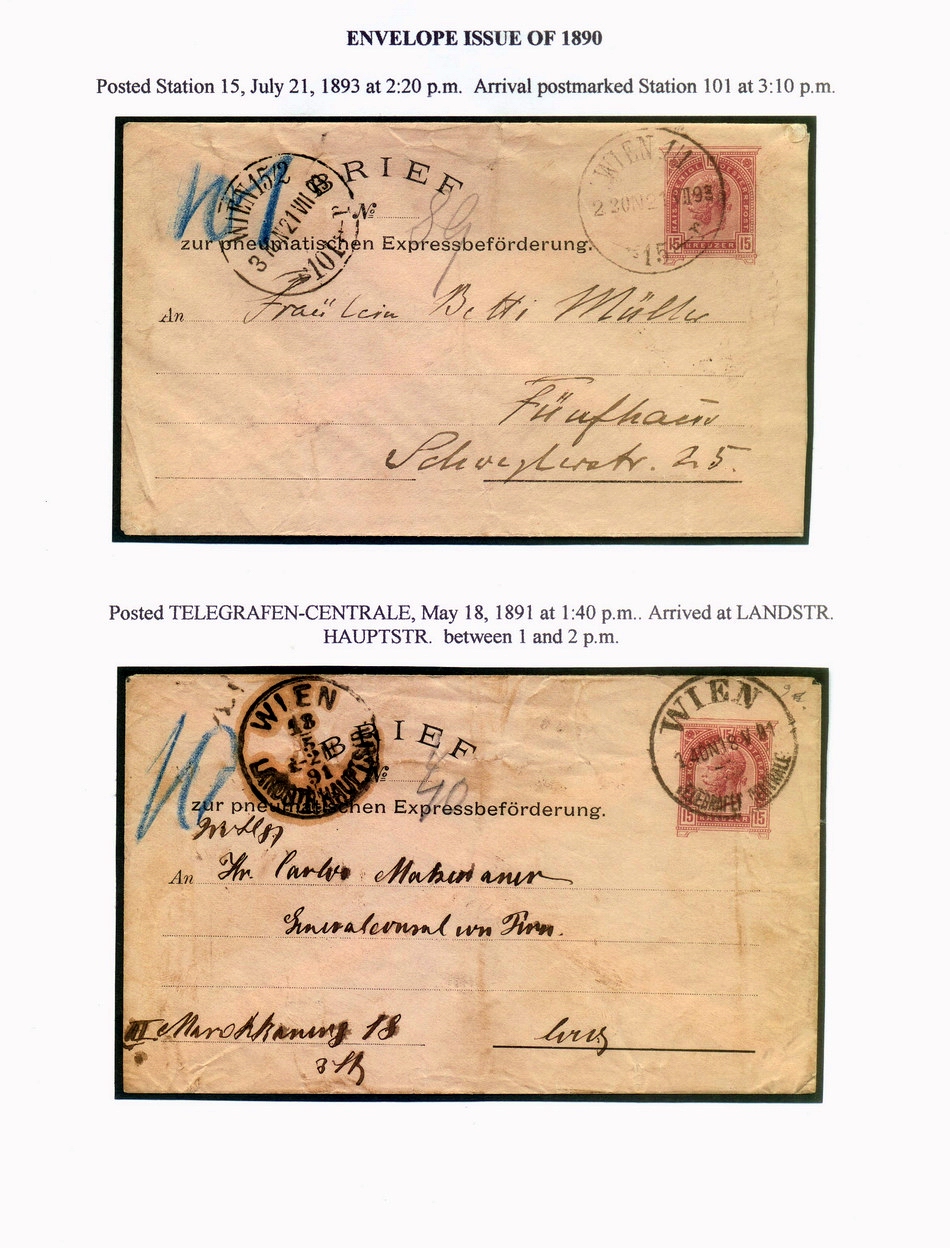 ENVELOPE ISSUE OF 1890
Posted Station 15, July 21, 1893 at 2:20 p.m. Arrival postmarked Station 101 at 3:10 p.m.
RIEF
WIEN 1/1
15
WIEN 15/2
21 VII 93
101
15 KREUZER 15
No
89
zur pneumatischen Expressbeförderung.
An Fräulein Betti Müller
Fünfhaus
Schweglerstr. 25.
Posted TELEGRAFEN-CENTRALE, May 18, 1891 at 1:40 p.m.. Arrived at LANDSTR.
HAUPTSTR. between 1 and 2 p.m.
WIEN
18
5
91
LANDSTR. HAUPTSTR
IEF
WIEN
1 40N 18 V 91
TELEGRAFEN CENTRALE
15 KREUZER 15
No
40
zur pneumatischen Expressbeförderung.
An Hr. Carlo
Generalconsul von
III Marokkanerg 18